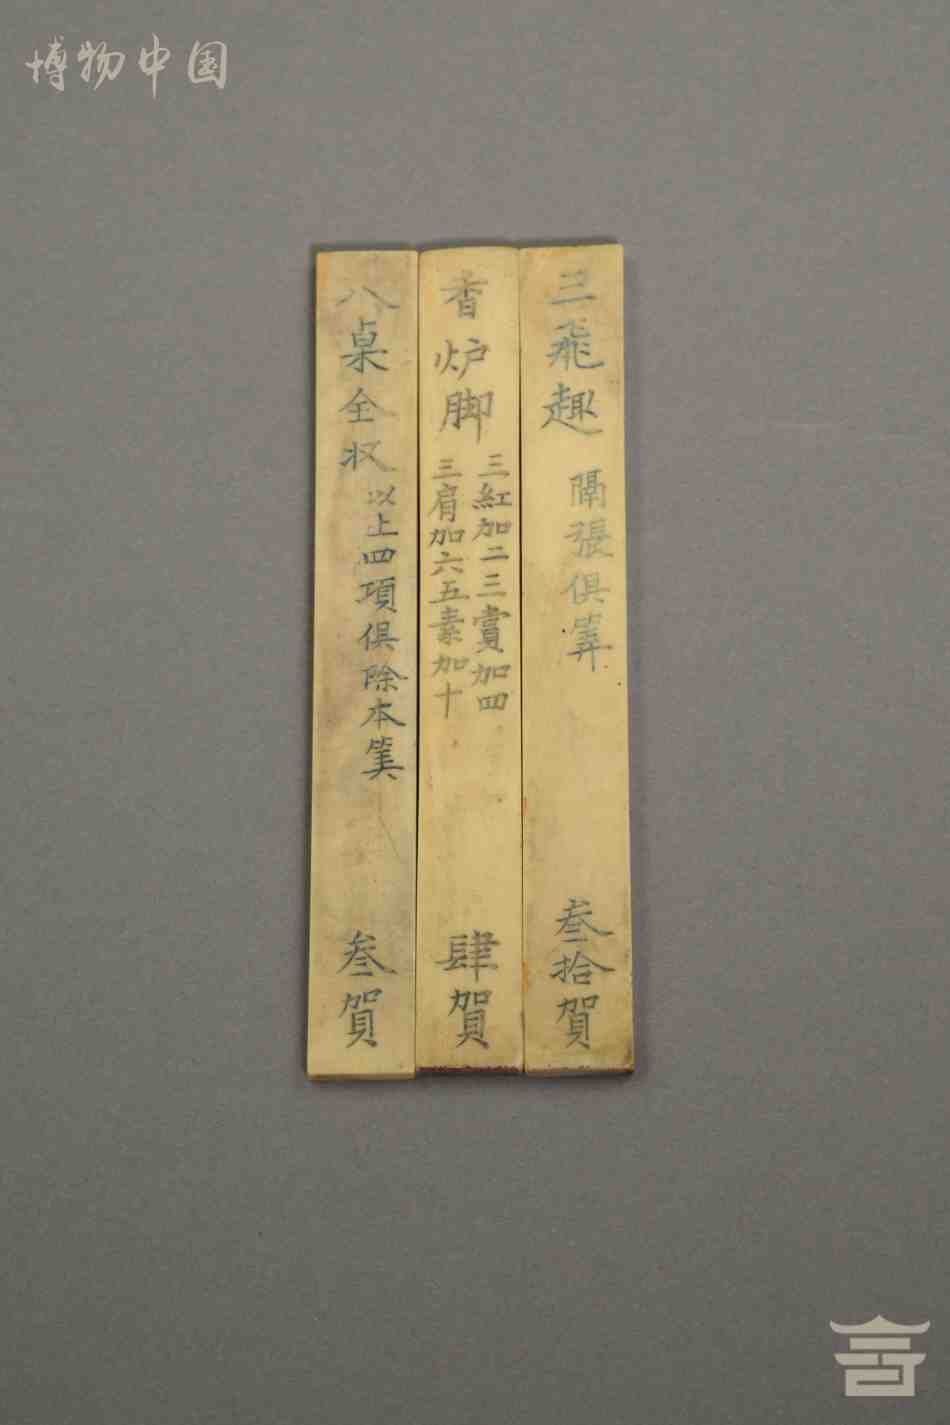 博物中国
三飛趣
隔張俱筭
叁拾賀
香炉脚
三紅加二三賞加四
三肩加六五素加十
肆賀
八桌全収
以上四項俱除本筭
叁賀